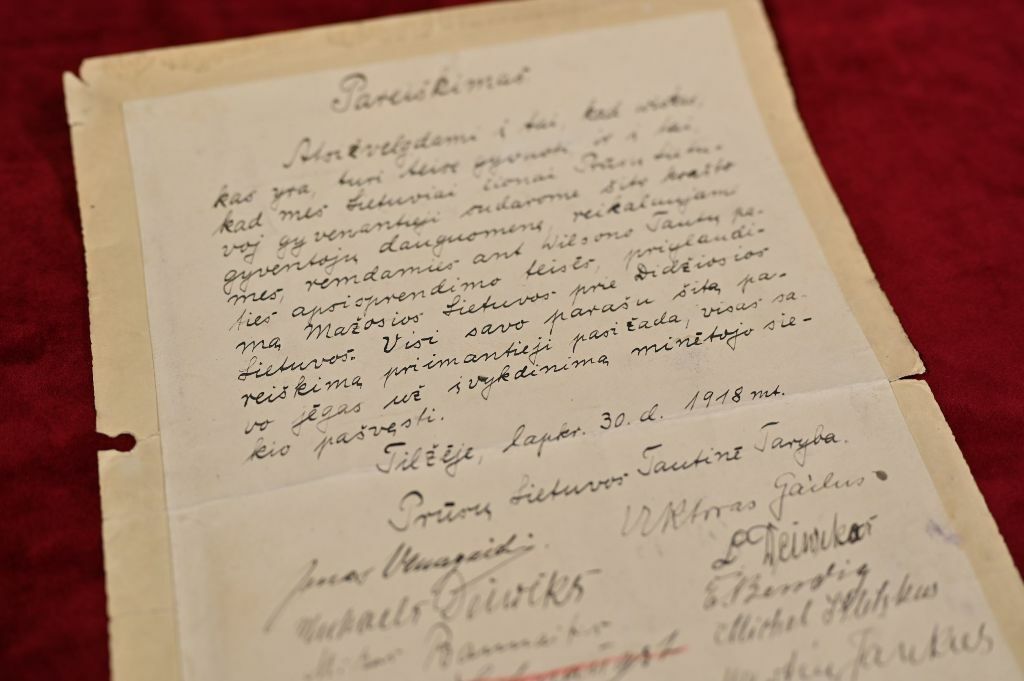 Pareiškimas
Atsižvelgdami į tai, kad viskas,
kas yra, turi teisę gyvuoti, ir į tai,
kad mes Lietuviai čionai Prūsų Lietu-
voj gyvenantieji sudarome šito krašto
gyventojų dauguomenę, reikalaujami
mes, remdamies ant Wilsono Tautų pa-
ties apsisprendimo teisės, priglaudi-
mą Mažosios Lietuvos prie Didžiosios
Lietuvos. Visi savo parašu šitą pa-
reiškimą priimantieji pasižada, visas sa-
vo jėgas už įvykdinimą minėtojo sie-
kio pašvęsti.
Tilžėje, lapkr. 30. d. 1918 mt.
Prūsų Lietuvos Tautinė Taryba.
Viktoras Gailus
Jonas Vanagaitis.
L Deiwikas
Mikaels Deiwiks
E. Bendig
Michel
Jankus